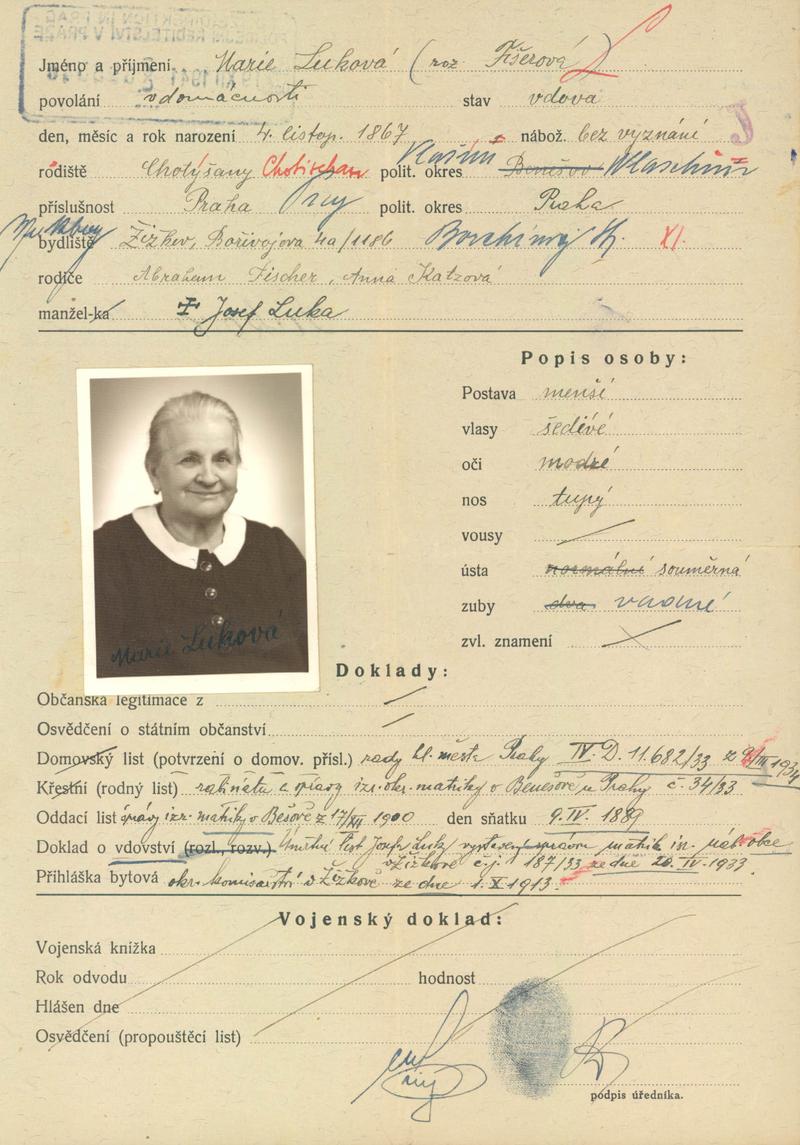 POLIZEIDIREKTION IN PRAG
POLICEJNÍ ŘEDITELSTVÍ V PRAZE
Jméno a příjmení Marie Luková (roz Fišerová)
povolání v domácnosti stav vdova
den, měsíc a rok narození 4. listop. 1867 nábož. bez vyznání J
rodiště Chotýšany Chotischan polit. okres Vlašim Benešov Wlaschim
příslušnost Praha Prag polit. okres Praha
bydliště Žižkov, Bořivojova 4a/1186 XI.
rodiče Abraham Fischer, Anna Katzová
manžel-ka Josef Luka
Popis osoby:
Postava menší
vlasy šedivé
oči modré
nos tupý
vousy
ústa normální souměrná
zuby dva vadné
zvl. znamení
Marie Luková
Doklady:
Občanská legitimace z
Osvědčení o státním občanství
Domovský list (potvrzení o domov. přísl.) rady hl. města Prahy IV. D. 11.682/33 z 1934
Křestní (rodný list) rabinátu a správy izr. okr. matriky v Benešově u Prahy č. 34/33
Oddací list správy izr. matriky v z 17/XII 1900 den sňatku 9. IV. 1889
Doklad o vdovství (rozl., rozv.) Úmrtní list Josefa Luky vystavený správou matrik in. náb. obce
v Žižkově č.j. 187/33 ze dne 20. IV. 1933
Přihláška bytová okr. komisařství v Žižkově ze dne 1. X 1913
Vojenský doklad:
Vojenská knížka
Rok odvodu hodnost
Hlášen dne
Osvědčení (propouštěcí list)
podpis úředníka.